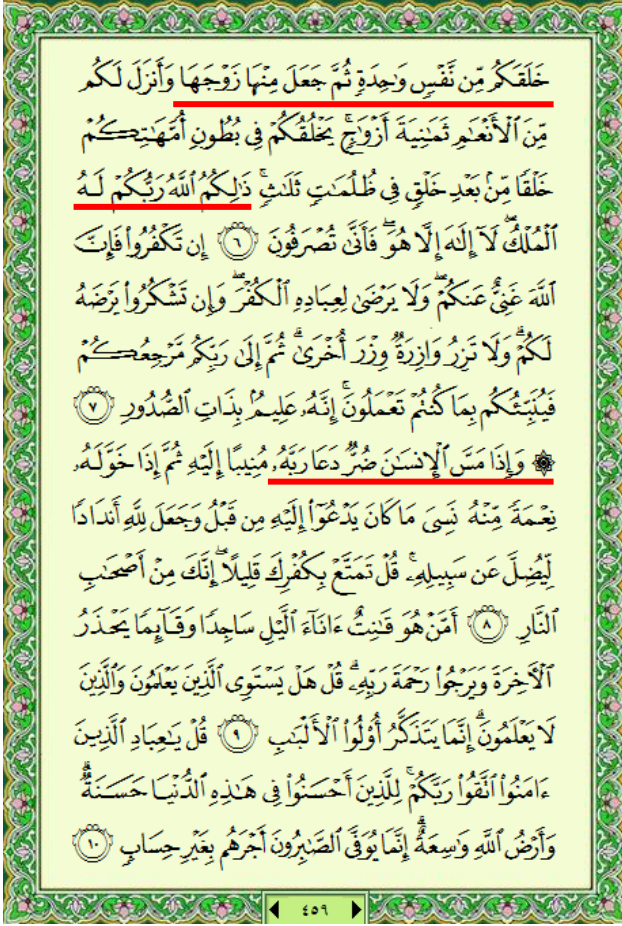 خَلَقَكُم مِّن نَّفۡسٖ وَٰحِدَةٖ ثُمَّ جَعَلَ مِنۡهَا زَوۡجَهَا وَأَنزَلَ لَكُم
مِّنَ ٱلۡأَنۡعَٰمِ ثَمَٰنِيَةَ أَزۡوَٰجٖۚ يَخۡلُقُكُمۡ فِي بُطُونِ أُمَّهَٰتِكُمۡ
خَلۡقٗا مِّنۢ بَعۡدِ خَلۡقٖ فِي ظُلُمَٰتٖ ثَلَٰثٖۚ ذَٰلِكُمُ ٱللَّهُ رَبُّكُمۡ لَهُ
ٱلۡمُلۡكُۖ لَآ إِلَٰهَ إِلَّا هُوَۖ فَأَنَّىٰ تُصۡرَفُونَ ٦ إِن تَكۡفُرُواْ فَإِنَّ
ٱللَّهَ غَنِيٌّ عَنكُمۡۖ وَلَا يَرۡضَىٰ لِعِبَادِهِ ٱلۡكُفۡرَۖ وَإِن تَشۡكُرُواْ يَرۡضَهُ
لَكُمۡۗ وَلَا تَزِرُ وَازِرَةٞ وِزۡرَ أُخۡرَىٰۗ ثُمَّ إِلَىٰ رَبِّكُم مَّرۡجِعُكُمۡ
فَيُنَبِّئُكُم بِمَا كُنتُمۡ تَعۡمَلُونَۚ إِنَّهُۥ عَلِيمُۢ بِذَاتِ ٱلصُّدُورِ ٧
۞ وَإِذَا مَسَّ ٱلۡإِنسَٰنَ ضُرّٞ دَعَا رَبَّهُۥ مُنِيبًا إِلَيۡهِ ثُمَّ إِذَا خَوَّلَهُۥ
نِعۡمَةٗ مِّنۡهُ نَسِيَ مَا كَانَ يَدۡعُوٓاْ إِلَيۡهِ مِن قَبۡلُ وَجَعَلَ لِلَّهِ أَندَادٗا
لِّيُضِلَّ عَن سَبِيلِهِۦۚ قُلۡ تَمَتَّعۡ بِكُفۡرِكَ قَلِيلًا إِنَّكَ مِنۡ أَصۡحَٰبِ
ٱلنَّارِ ٨ أَمَّنۡ هُوَ قَٰنِتٌ ءَانَآءَ ٱلَّيۡلِ سَاجِدٗا وَقَآئِمٗا يَحۡذَرُ
ٱلۡأٓخِرَةَ وَيَرۡجُواْ رَحۡمَةَ رَبِّهِۦۗ قُلۡ هَلۡ يَسۡتَوِي ٱلَّذِينَ يَعۡلَمُونَ وَٱلَّذِينَ
لَا يَعۡلَمُونَۗ إِنَّمَا يَتَذَكَّرُ أُوْلُواْ ٱلۡأَلۡبَٰبِ ٩ قُلۡ يَٰعِبَادِ ٱلَّذِينَ
ءَامَنُواْ ٱتَّقُواْ رَبَّكُمۡۚ لِلَّذِينَ أَحۡسَنُواْ فِي هَٰذِهِ ٱلدُّنۡيَا حَسَنَةٞۗ
وَأَرۡضُ ٱللَّهِ وَٰسِعَةٌۗ إِنَّمَا يُوَفَّى ٱلصَّٰبِرُونَ أَجۡرَهُم بِغَيۡرِ حِسَابٖ ١٠
٤٥٩